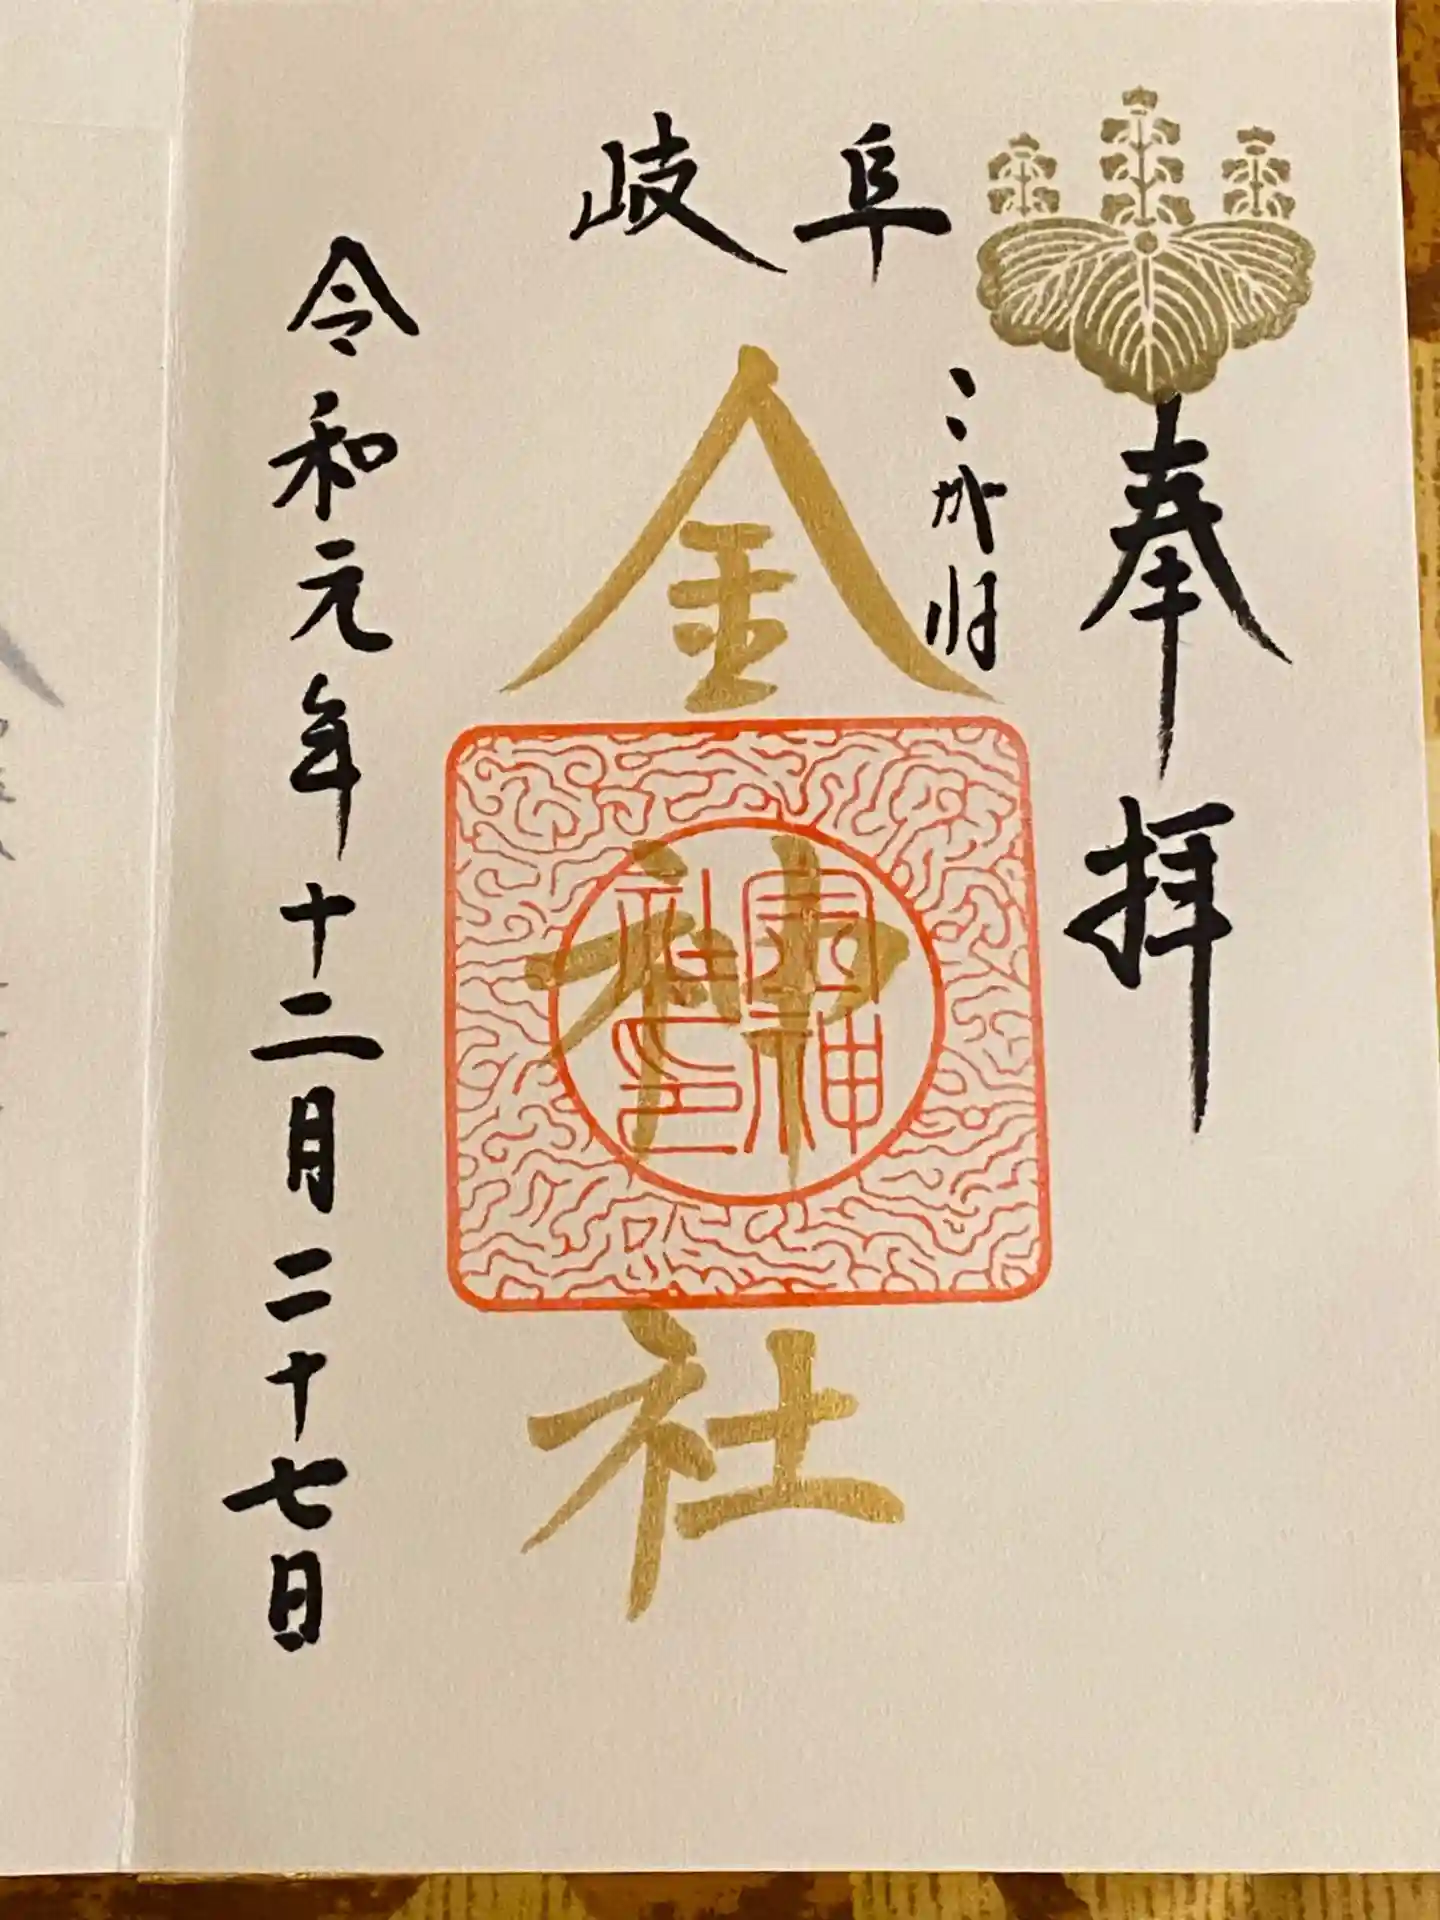 奉拝
岐阜
こがね
金神社
神
社印
令和元年十二月二十七日